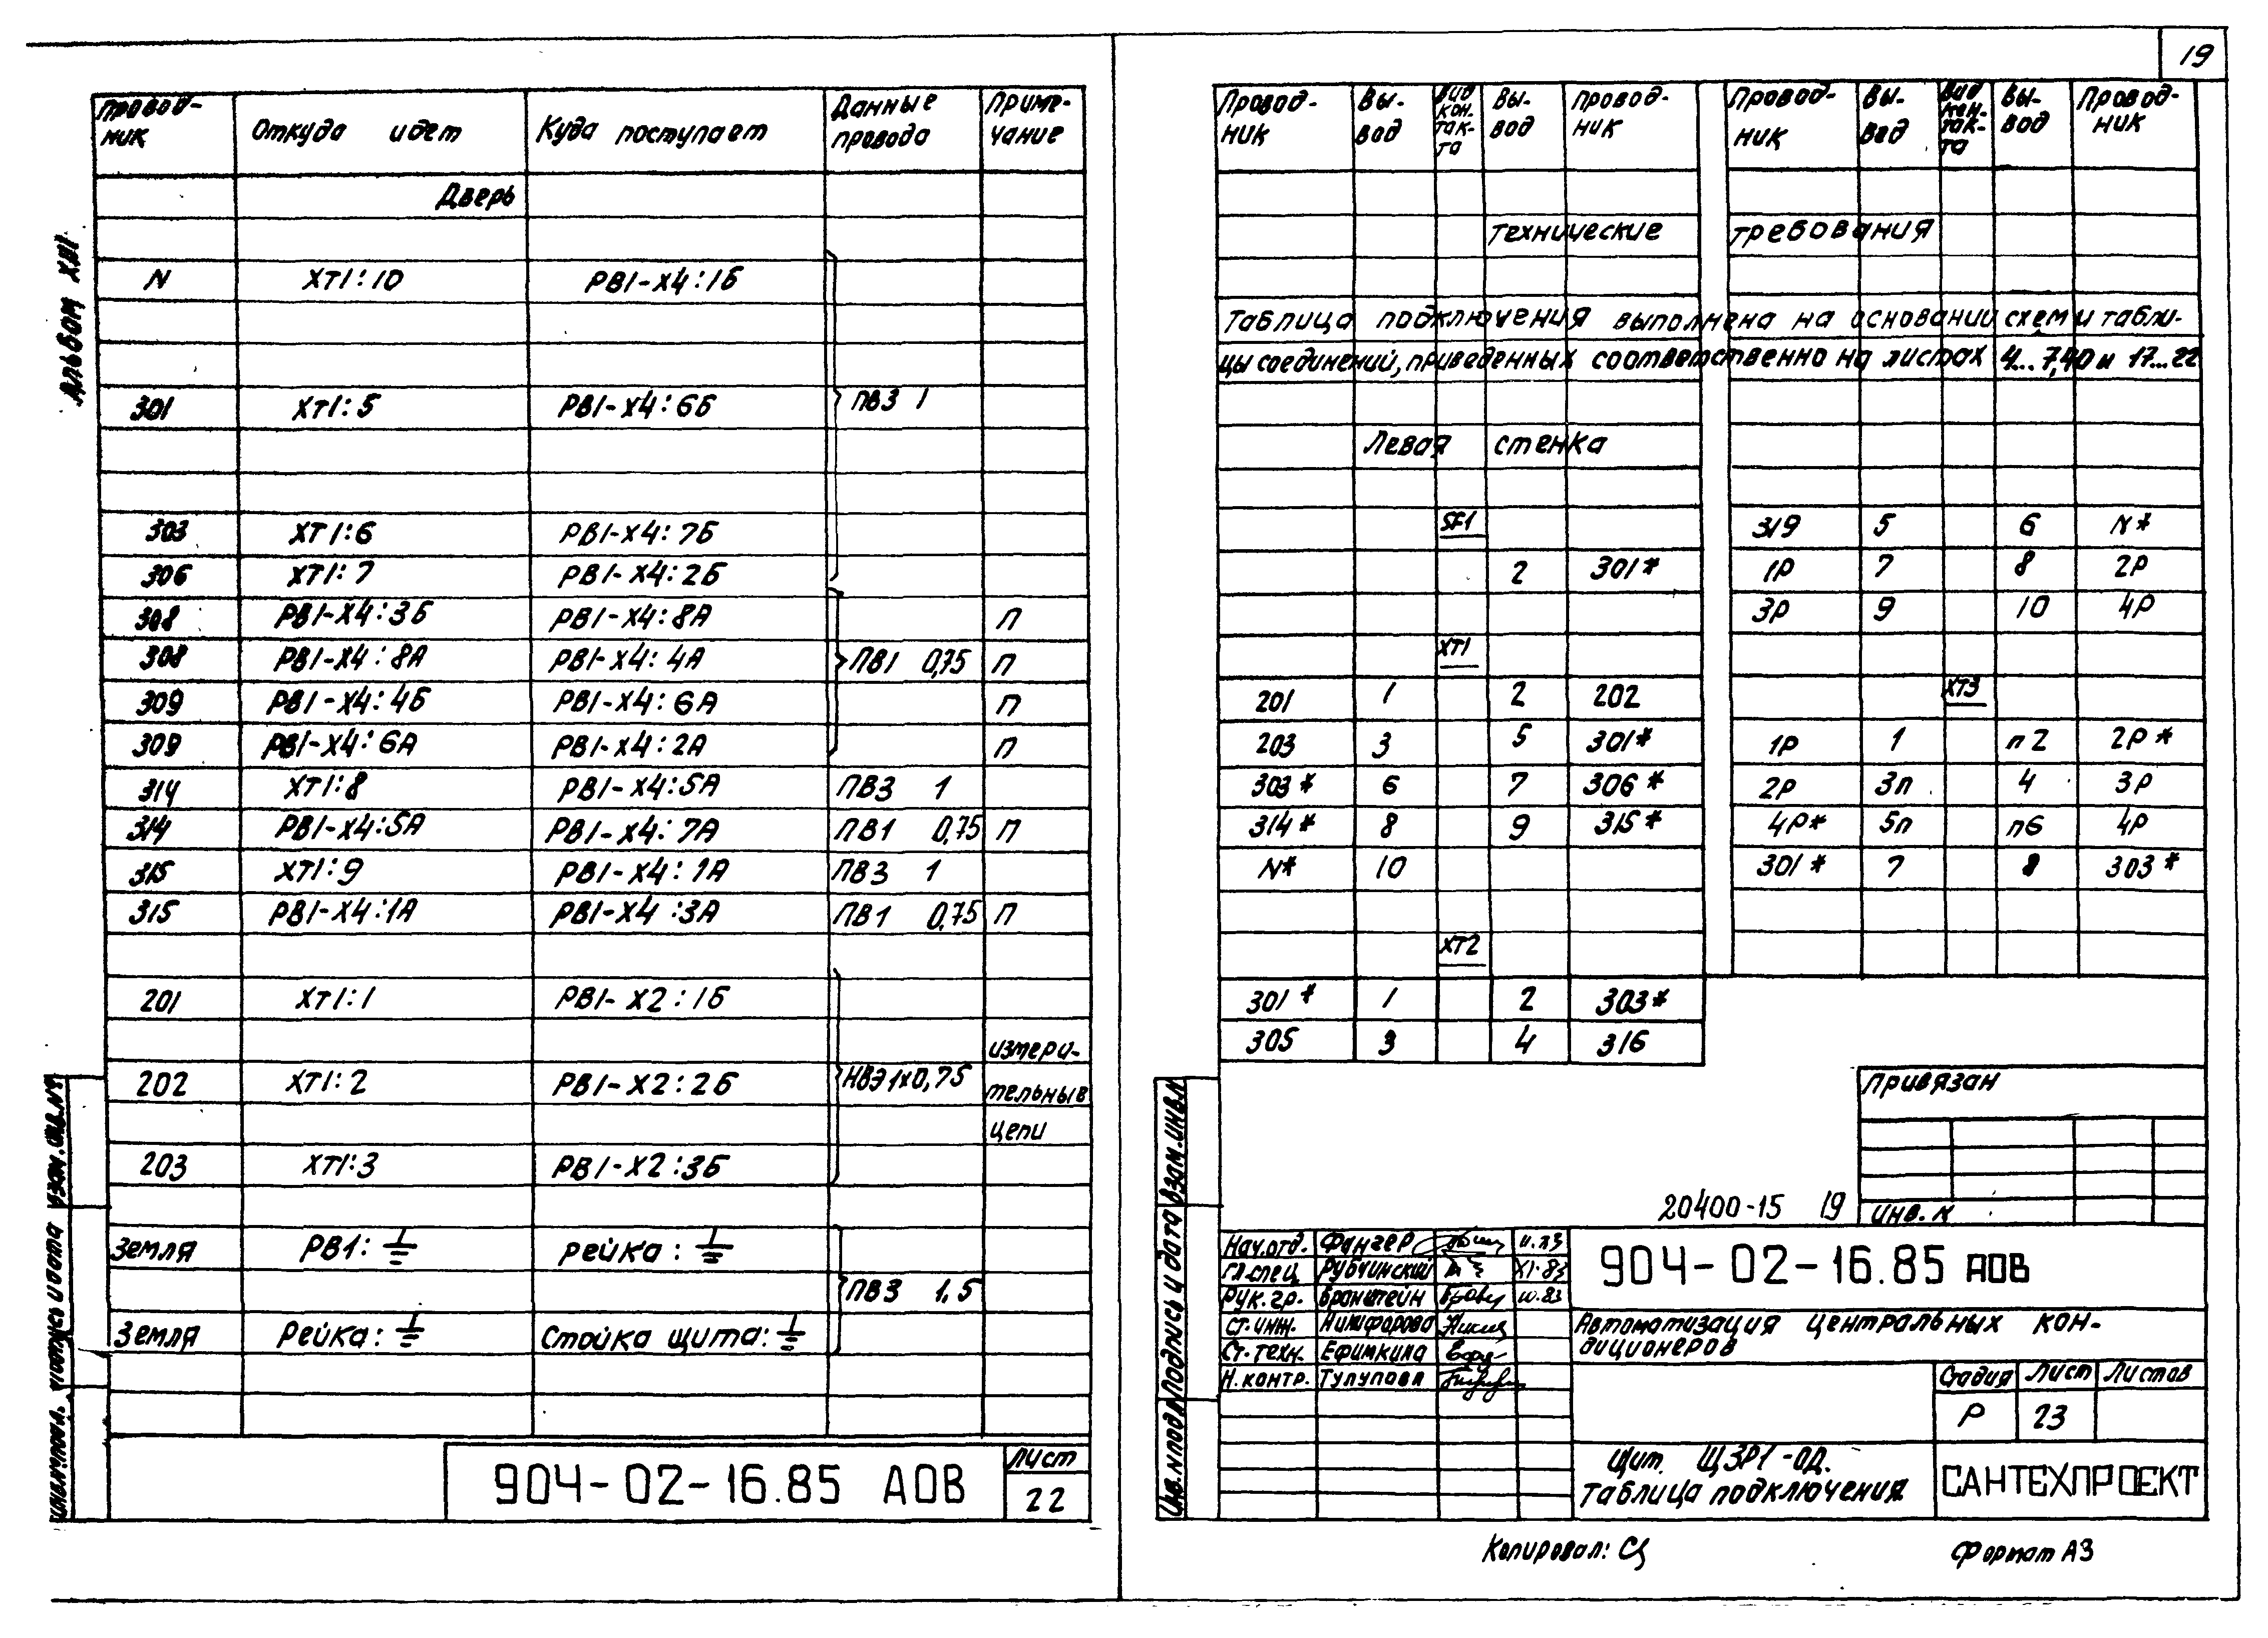 19
Альбом XIII
Провод-ник Откуда идет Куда поступает Данные провода Приме-чание
Дверь
N XT1:10 PB1-X4:1Б
301 XT1:5 PB1-X4:6Б ПВ3 1
303 XT1:6 PB1-X4:7Б
306 XT1:7 PB1-X4:2Б
308 PB1-X4:3Б PB1-X4:8А П
308 PB1-X4:8А PB1-X4:4А ПВ1 0,75 П
309 PB1-X4:4Б PB1-X4:6А П
309 PB1-X4:6А PB1-X4:2А П
314 XT1:8 PB1-X4:5А ПВ3 1
314 PB1-X4:5А PB1-X4:7А ПВ1 0,75 П
315 XT1:9 PB1-X4:1А ПВ3 1
315 PB1-X4:1А PB1-X4:3А ПВ1 0,75 П
201 XT1:1 PB1-X2:1Б
измери-
202 XT1:2 PB1-X2:2Б НВЭ 1х0,75 тельные
цепи
203 XT1:3 PB1-X2:3Б
Земля PB1:⏚ Рейка:⏚
ПВ3 1,5
Земля Рейка:⏚ Стойка щита:⏚
904-02-16.85 АОВ
Лист
22
Инв.№подл. Подпись и дата Взам.инв.№
Провод-ник Вы-вод Вид кон-так-та Вы-вод Провод-ник Провод-ник Вы-вод Вид кон-так-та Вы-вод Провод-ник
технические требования
Таблица подключения выполнена на основании схем и табли-
цы соединений, приведенных соответственно на листах 4...7,40 и 17...22
Левая стенка
SF1
2 301*
XT1
201 1 2 202
203 3 5 301*
303* 6 7 306*
314* 8 9 315*
N* 10
XT2
301* 1 2 303*
305 3 4 316
319 5 6 N*
1Р 7 8 2Р
3Р 9 10 4Р
XT3
1Р 1 п2 2Р*
2Р 3п 4 3Р
4Р* 5п п6 4Р
301* 7 8 303*
Привязан
Инв. №
20400-15 19
Инв.№подл Подпись и дата Взам.инв.№
Нач.отд. Фангер
Гл.спец Рубчинский XI.83
Рук.гр. Бронштейн
Ст.инж. Никифорова
Ст.техн. Ефимкина
Н.контр. Тулупова
904-02-16.85 АОВ
Автоматизация центральных кон-
диционеров
Стадия Лист Листов
Р 23
Щит ЩЗР1-ОД.
Таблица подключения
САНТЕХПРОЕКТ
Копировал:
Формат А3